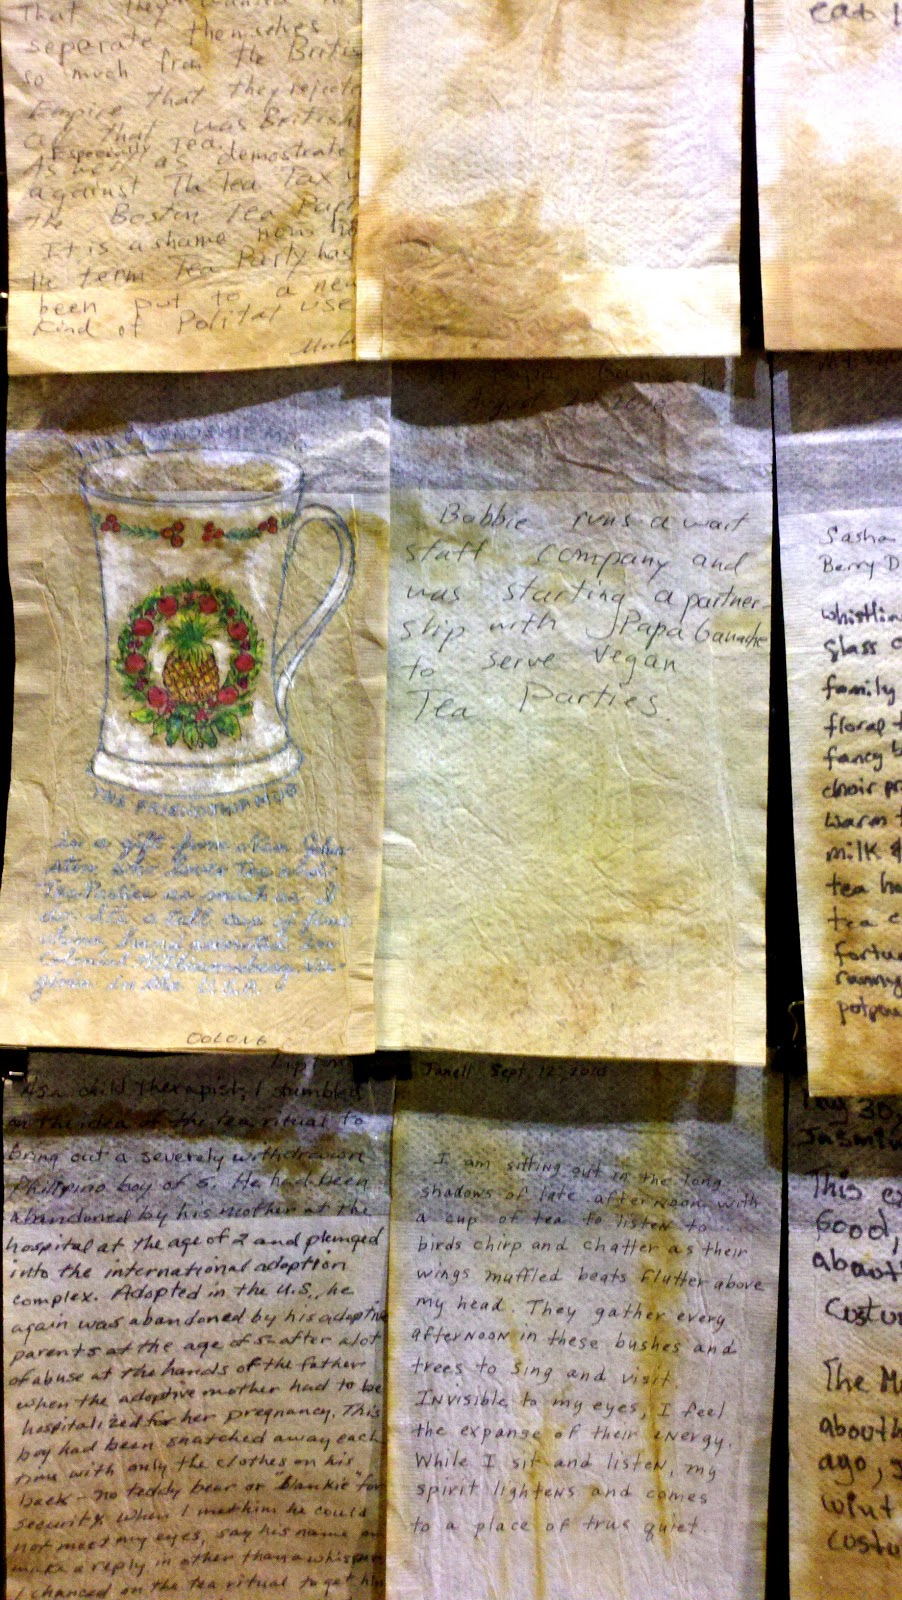 That they wanted to
seperate themselves
so much from the British
Empire that they rejected
all that was British
Especially Tea.
As well as demostrate
against The Tea Tax
the Boston Tea Part
It is a shame now
the term Tea Party has
been put to a new
kind of Polital use
eat
THE FRIENDSHIP MUG
is a gift from
who loves Tea and
Tea Parties as much as I
do. It's a tall cup of fine
china, hand
Colonial Williamsburg, Vir-
ginia in the U.S.A.
OOLONG
August
Bobbie runs a wait
staff company and
was starting a partner-
ship with Papa Ganache
to serve Vegan
Tea Parties.
Sasha
Berry D
whistlin
glass
family
floral t
fancy b
choir pr
warm t
milk &
tea ha
tea c
fortu
ranny
potpou
Lipton
As a child therapist, I stumbled
on the idea of the tea ritual to
bring out a severely withdrawn
Philipino boy of 5. He had been
abandoned by his mother at the
hospital at the age of 2 and plunged
into the international adoption
complex. Adopted in the U.S., he
again was abandoned by his adoptive
parents at the age of 5 after a lot
of abuse at the hands of the father
when the adoptive mother had to be
hospitalized for her pregnancy. This
boy had been snatched away each
time with only the clothes on his
back - no teddy bear or "blankie" for
security. When I met him he could
not meet my eyes, say his name or
make a reply in other than a whisper
I chanced on the tea ritual to get him
Janell Sept. 12, 2010
I am sitting out in the long
shadows of late afternoon with
a cup of tea to listen to
birds chirp and chatter as their
wings muffled beats flutter above
my head. They gather every
afternoon in these bushes and
trees to sing and visit.
Invisible to my eyes, I feel
the expanse of their energy.
While I sit and listen, my
spirit lightens and comes
to a place of true quiet.
30,
Jasmin
This
Good,
about
Custu
The M
about
ago,
wint
costu